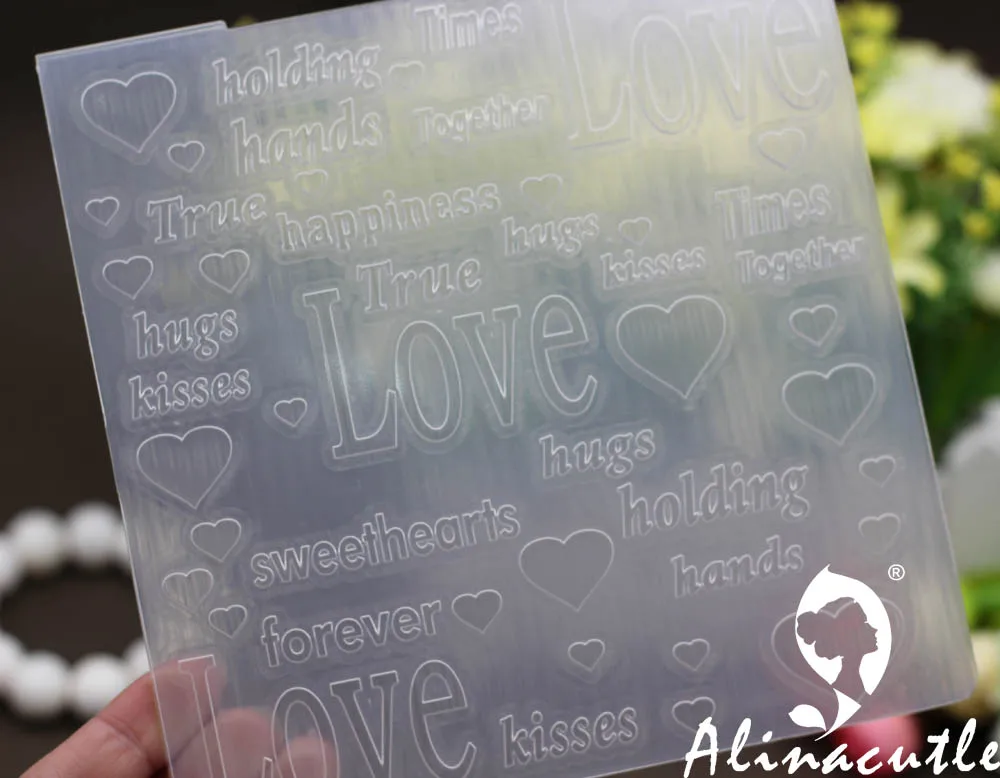 Times
Love
holding
hands
Together
True
happiness
hugs
kisses
Times
Together
True
Love
hugs
kisses
hugs
holding
hands
sweethearts
forever
Love
kisses
®
Alinacutle